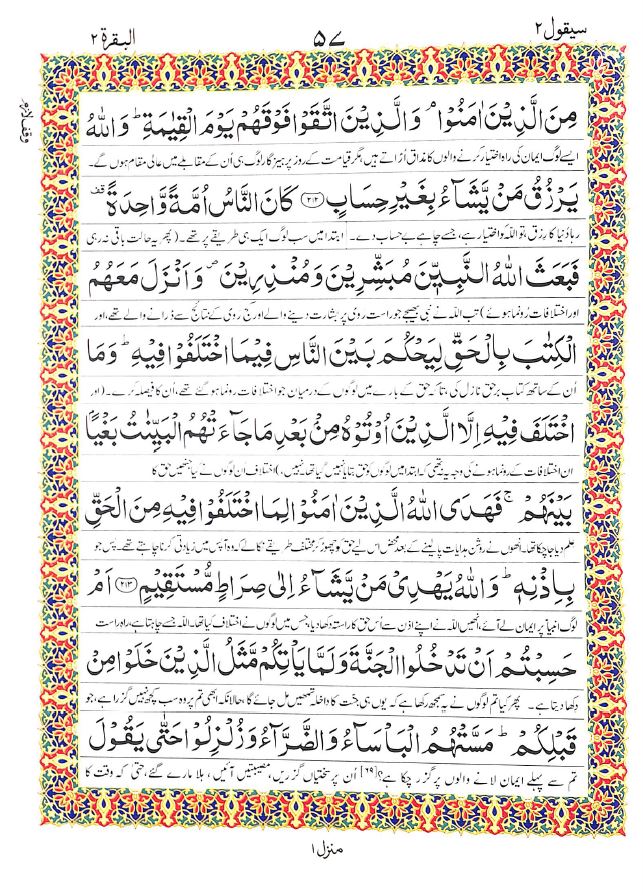 سیقول ٢
٥٧
البقرة ٢
وقف لازم
مِنَ الَّذِيْنَ اٰمَنُوْا ۘ وَالَّذِيْنَ اتَّقَوْا فَوْقَهُمْ يَوْمَ الْقِيٰمَةِ ؕ وَاللّٰهُ
ایسے لوگ ایمان کی راہ اختیار کرنے والوں کا مذاق اُڑاتے ہیں، مگر قیامت کے روز پرہیزگار لوگ ہی اُن کے مقابلے میں عالی مقام ہوں گے۔
يَرْزُقُ مَنْ يَّشَآءُ بِغَيْرِ حِسَابٍ ﴿٢١٢﴾ كَانَ النَّاسُ اُمَّةً وَّاحِدَةً قف
رہا دُنیا کا رزق، تو اللہ کو اختیار ہے، جسے چاہے بے حساب دے۔ ابتدا میں سب لوگ ایک ہی طریقے پر تھے۔ (پھر یہ حالت باقی نہ رہی
فَبَعَثَ اللّٰهُ النَّبِيّٖنَ مُبَشِّرِيْنَ وَمُنْذِرِيْنَ ۪ وَاَنْزَلَ مَعَهُمُ
اور اختلافات رُونما ہوئے) تب اللہ نے نبی بھیجے جو راست روی پر بشارت دینے والے اور کج روی کے نتائج سے ڈرانے والے تھے، اور
الْكِتٰبَ بِالْحَقِّ لِيَحْكُمَ بَيْنَ النَّاسِ فِيْمَا اخْتَلَفُوْا فِيْهِ ؕ وَمَا
اُن کے ساتھ کتاب برحق نازل کی، تاکہ حق کے بارے میں لوگوں کے درمیان جو اختلافات رونما ہو گئے تھے، اُن کا فیصلہ کرے۔ (اور
اخْتَلَفَ فِيْهِ اِلَّا الَّذِيْنَ اُوْتُوْهُ مِنْۢ بَعْدِ مَا جَآءَتْهُمُ الْبَيِّنٰتُ بَغْيًاۢ
ان اختلافات کے رونما ہونے کی وجہ یہ نہ تھی کہ ابتدا میں لوگوں کو حق بتایا نہیں گیا تھا۔ نہیں،) اختلاف اُن لوگوں نے کیا جنھیں حق کا
بَيْنَهُمْ ۚ فَهَدَى اللّٰهُ الَّذِيْنَ اٰمَنُوْا لِمَا اخْتَلَفُوْا فِيْهِ مِنَ الْحَقِّ
علم دیا جا چکا تھا۔ اُنھوں نے روشن ہدایات پا لینے کے بعد محض اس لیے حق کو چھوڑ کر مختلف طریقے نکالے کہ وہ آپس میں زیادتی کرنا چاہتے تھے۔ پس جو
بِاِذْنِهٖ ؕ وَاللّٰهُ يَهْدِيْ مَنْ يَّشَآءُ اِلٰى صِرَاطٍ مُّسْتَقِيْمٍ ﴿٢١٣﴾ اَمْ
لوگ انبیا پر ایمان لے آئے، انھیں اللہ نے اپنے اذن سے اُس حق کا راستہ دکھا دیا، جس میں لوگوں نے اختلاف کیا تھا۔ اللہ جسے چاہتا ہے، راہ راست
حَسِبْتُمْ اَنْ تَدْخُلُوا الْجَنَّةَ وَلَمَّا يَاْتِكُمْ مَّثَلُ الَّذِيْنَ خَلَوْا مِنْ
دکھا دیتا ہے۔ پھر کیا تم لوگوں نے یہ سمجھ رکھا ہے کہ یوں ہی جنت کا داخلہ تمھیں مل جائے گا، حالانکہ ابھی تم پر وہ سب کچھ نہیں گزرا ہے، جو
قَبْلِكُمْ ؕ مَسَّتْهُمُ الْبَاْسَآءُ وَالضَّرَّآءُ وَزُلْزِلُوْا حَتّٰى يَقُوْلَ
تم سے پہلے ایمان لانے والوں پر گزر چکا ہے؟[٦٩] اُن پر سختیاں گزریں، مصیبتیں آئیں، ہلا مارے گئے، حتیٰ کہ وقت کا
منزل ١